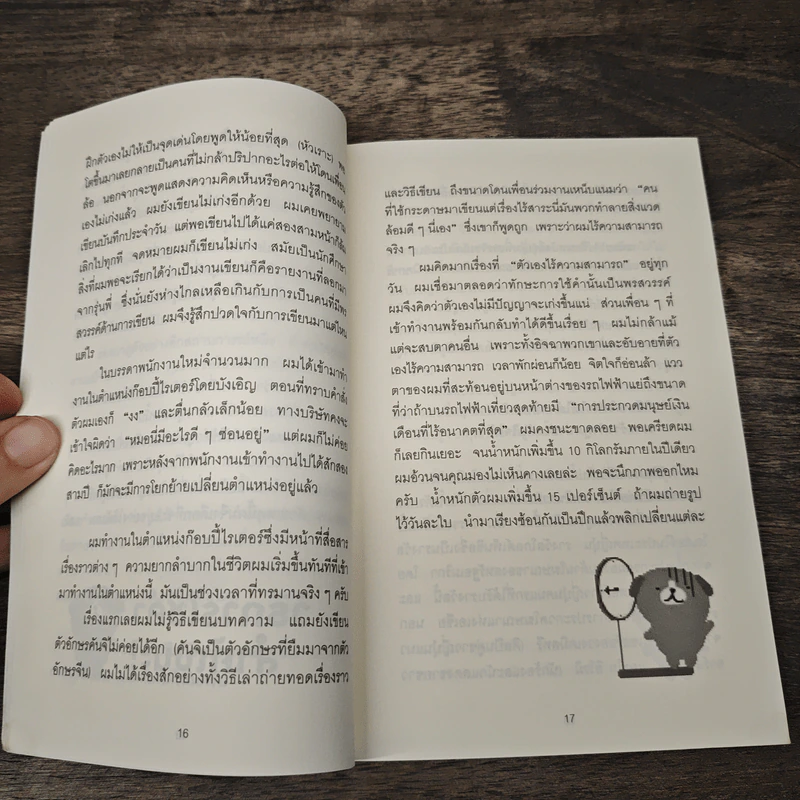 ฝึกตัวเองไม่ให้เป็นจุดเด่นโดยพูดให้น้อยที่สุด (หัวเราะ) พอ
โตขึ้นมาเลยกลายเป็นคนที่ไม่กล้าปริปากอะไรต่อให้โดนเพื่อน
ล้อ นอกจากจะพูดแสดงความคิดเห็นหรือความรู้สึกของตัว
เองไม่เก่งแล้ว ผมยังเขียนไม่เก่งอีกด้วย ผมเคยพยายาม
เขียนบันทึกประจำวัน แต่พอเขียนไปได้แค่สองสามหน้าก็ล้ม
เลิกไปทุกที จดหมายผมก็เขียนไม่เก่ง สมัยเป็นนักศึกษา
สิ่งที่ผมพอจะเรียกได้ว่าเป็นงานเขียนก็คือรายงานที่ลอกมา
จากรุ่นพี่ ซึ่งนั่นยังห่างไกลเหลือเกินกับการเป็นคนที่มีพร
สวรรค์ด้านการเขียน ผมจึงรู้สึกปวดใจกับการเขียนมาแต่ไหน
แต่ไร
ในบรรดาพนักงานใหม่จำนวนมาก ผมได้เข้ามาทำ
งานในตำแหน่งก๊อบปี้ไรเตอร์โดยบังเอิญ ตอนที่ทราบคำสั่ง
ตัวผมเองก็ “งง” และตื่นกลัวเล็กน้อย ทางบริษัทคงจะ
เข้าใจผิดว่า “หมอนี่มีอะไรดี ๆ ซ่อนอยู่” แต่ผมก็ไม่ค่อย
คิดอะไรมาก เพราะหลังจากพนักงานเข้าทำงานไปได้สักสอง
สามปี ก็มักจะมีการโยกย้ายเปลี่ยนตำแหน่งอยู่แล้ว
ผมทำงานในตำแหน่งก๊อบปี้ไรเตอร์ซึ่งมีหน้าที่สื่อสาร
เรื่องราวต่างๆ ความยากลำบากในชีวิตผมเริ่มขึ้นทันทีที่เข้า
มาทำงานในตำแหน่งนี้ มันเป็นช่วงเวลาที่ทรมานจริงๆ ครับ
เรื่องแรกเลยผมไม่รู้วิธีเขียนบทความ แถมยังเขียน
ตัวอักษรคันจิไม่ค่อยได้อีก (คันจิเป็นตัวอักษรที่ยืมมาจากตัว
อักษรจีน) ผมไม่ได้เรื่องสักอย่างทั้งวิธีเล่าถ่ายทอดเรื่องราว
16
และวิธีเขียน ถึงขนาดโดนเพื่อนร่วมงานเหน็บแนมว่า “คน
ที่ใช้กระดาษมาเขียนแต่เรื่องไร้สาระนี่มันพวกทำลายสิ่งแวด
ล้อมดี ๆ นี่เอง” ซึ่งเขาก็พูดถูก เพราะว่าผมไร้ความสามารถ
จริง ๆ
ผมคิดมากเรื่องที่ “ตัวเองไร้ความสามารถ” อยู่ทุก
วัน ผมเชื่อมาตลอดว่าทักษะการใช้คำนั้นเป็นพรสวรรค์
ผมจึงคิดว่าตัวเองไม่มีปัญญาจะเก่งขึ้นแน่ ส่วนเพื่อน ๆ ที่
เข้าทำงานพร้อมกันกลับทำได้ดีขึ้นเรื่อย ๆ ผมไม่กล้าแม้
แต่จะสบตาคนอื่น เพราะทั้งอิจฉาพวกเขาและอับอายที่ตัว
เองไร้ความสามารถ เวลาพักผ่อนก็น้อย จิตใจก็อ่อนล้า แวว
ตาของผมที่สะท้อนอยู่บนหน้าต่างของรถไฟฟ้าแย่ถึงขนาด
ที่ว่าถ้าบนรถไฟฟ้าเที่ยวสุดท้ายมี “การประกวดมนุษย์เงิน
เดือนที่ไร้อนาคตที่สุด” ผมคงชนะขาดลอย พอเครียดผม
ก็เลยกินเยอะ จนน้ำหนักเพิ่มขึ้น 10 กิโลกรัมภายในปีเดียว
ผมอ้วนจนคุณมองไม่เห็นคางเลยล่ะ พอจะนึกภาพออกไหม
ครับ น้ำหนักตัวผมเพิ่มขึ้น 15 เปอร์เซ็นต์ ถ้าผมถ่ายรูป
ไว้วันละใบ นำมาเรียงซ้อนกันเป็นปึกแล้วพลิกเปลี่ยนแต่ละ
17